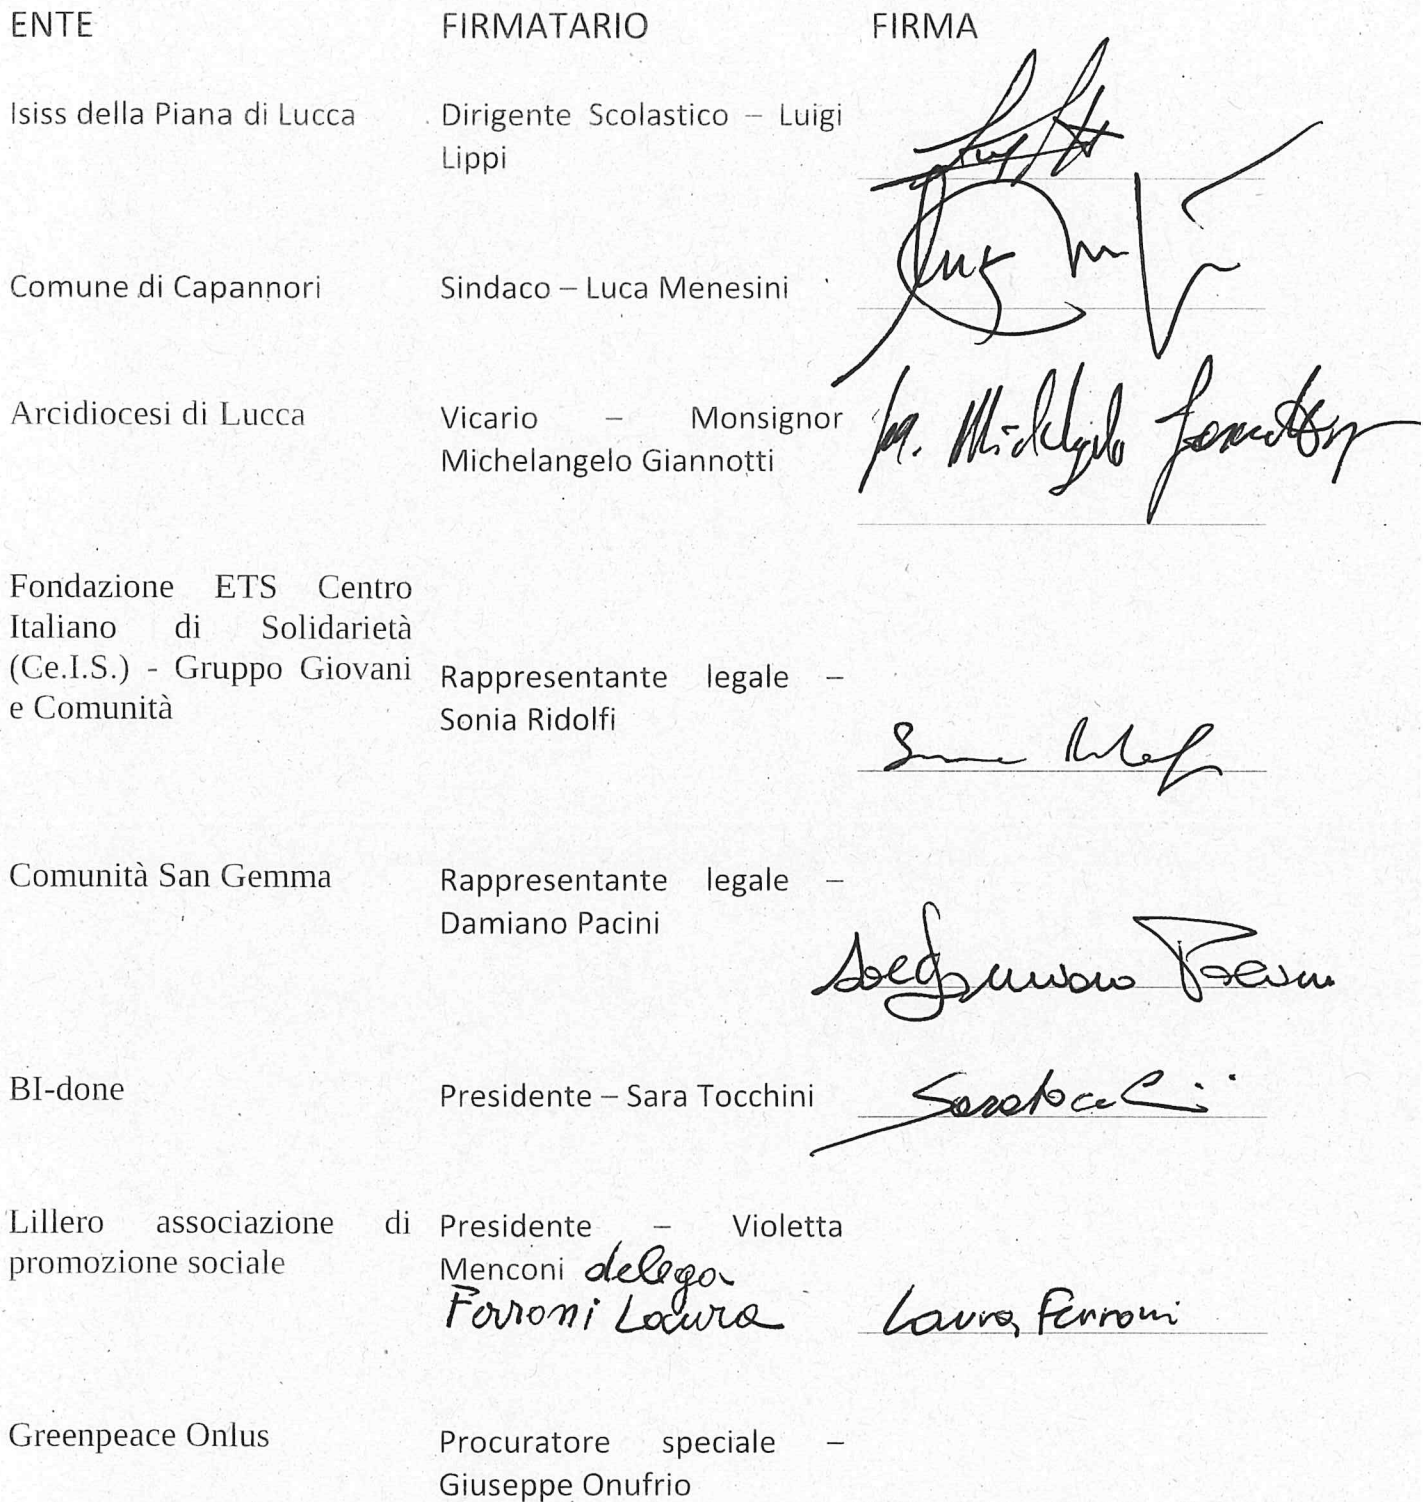 ENTE FIRMATARIO FIRMA
Isiss della Piana di Lucca
Dirigente Scolastico – Luigi
Lippi
Comune di Capannori
Sindaco – Luca Menesini
Arcidiocesi di Lucca
Vicario – Monsignor
Michelangelo Giannotti
Fondazione ETS Centro
Italiano di Solidarietà
(Ce.I.S.) - Gruppo Giovani
e Comunità
Rappresentante legale –
Sonia Ridolfi
Comunità San Gemma
Rappresentante legale –
Damiano Pacini
BI-done
Presidente – Sara Tocchini
Lillero associazione di
promozione sociale
Presidente – Violetta
Menconi delega
Ferroni Laura
Laura Ferroni
Greenpeace Onlus
Procuratore speciale –
Giuseppe Onufrio